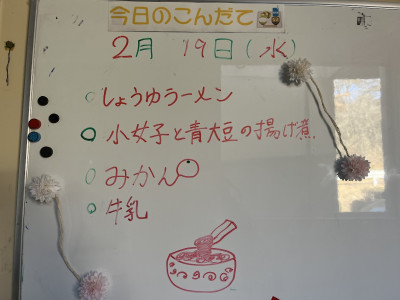 今日のこんだて
2月 19日(水)
しょうゆラーメン
小女子と青大豆の揚げ煮
みかん
牛乳